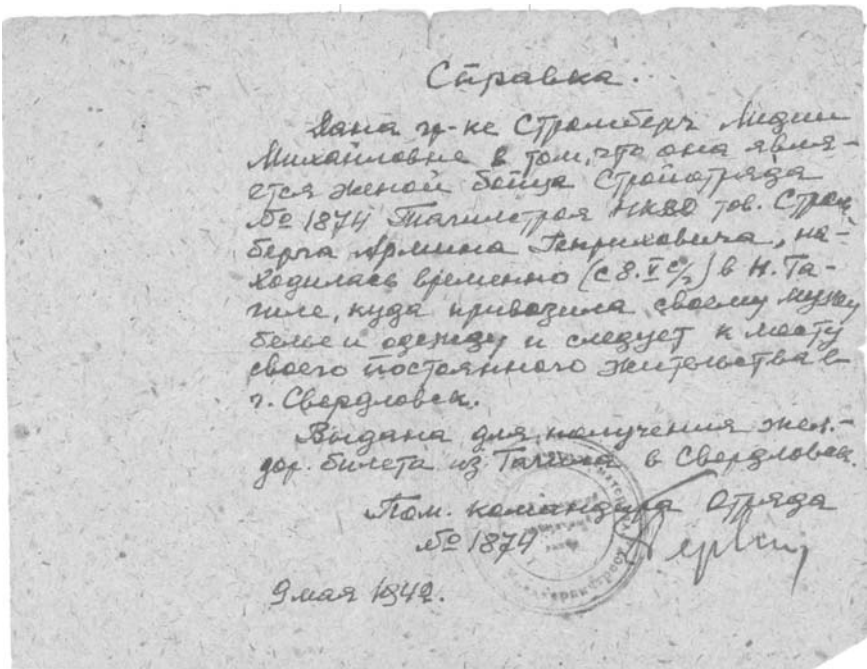 Справка.
Дана гр-ке Стромберг Лидии
Михайловне в том, что она явля-
ется женой бойца Стройотряда
№ 1874 Тагилстроя НКВД тов. Стром
берга Армина Генриховича, на-
ходилась временно (с 8.V с/г) в Н. Та-
гиле, куда привозила своему мужу
белье и одежду и следует к месту
своего постоянного жительства в
г. Свердловск.
Выдана для получения жел.-
дор. билета из Тагила в Свердловск.
Пом. командира Отряда
№ 1874
9 мая 1942.